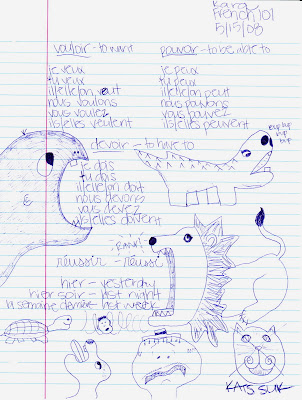 Kara
French 101
5/15/08
vouloir - to want
pouvoir - to be able to
je veux
tu veux
il/elle/on veut
nous voulons
vous voulez
ils/elles veulent
je peux
tu peux
il/elle/on peut
nous pouvons
vous pouvez
ils/elles peuvent
devoir - to have to
je dois
tu dois
il/elle/on doit
nous devons
vous devez
ils/elles doivent
RAWR!
réussir - réussi
hier - yesterday
hier soir - last night
la semaine dernière last week